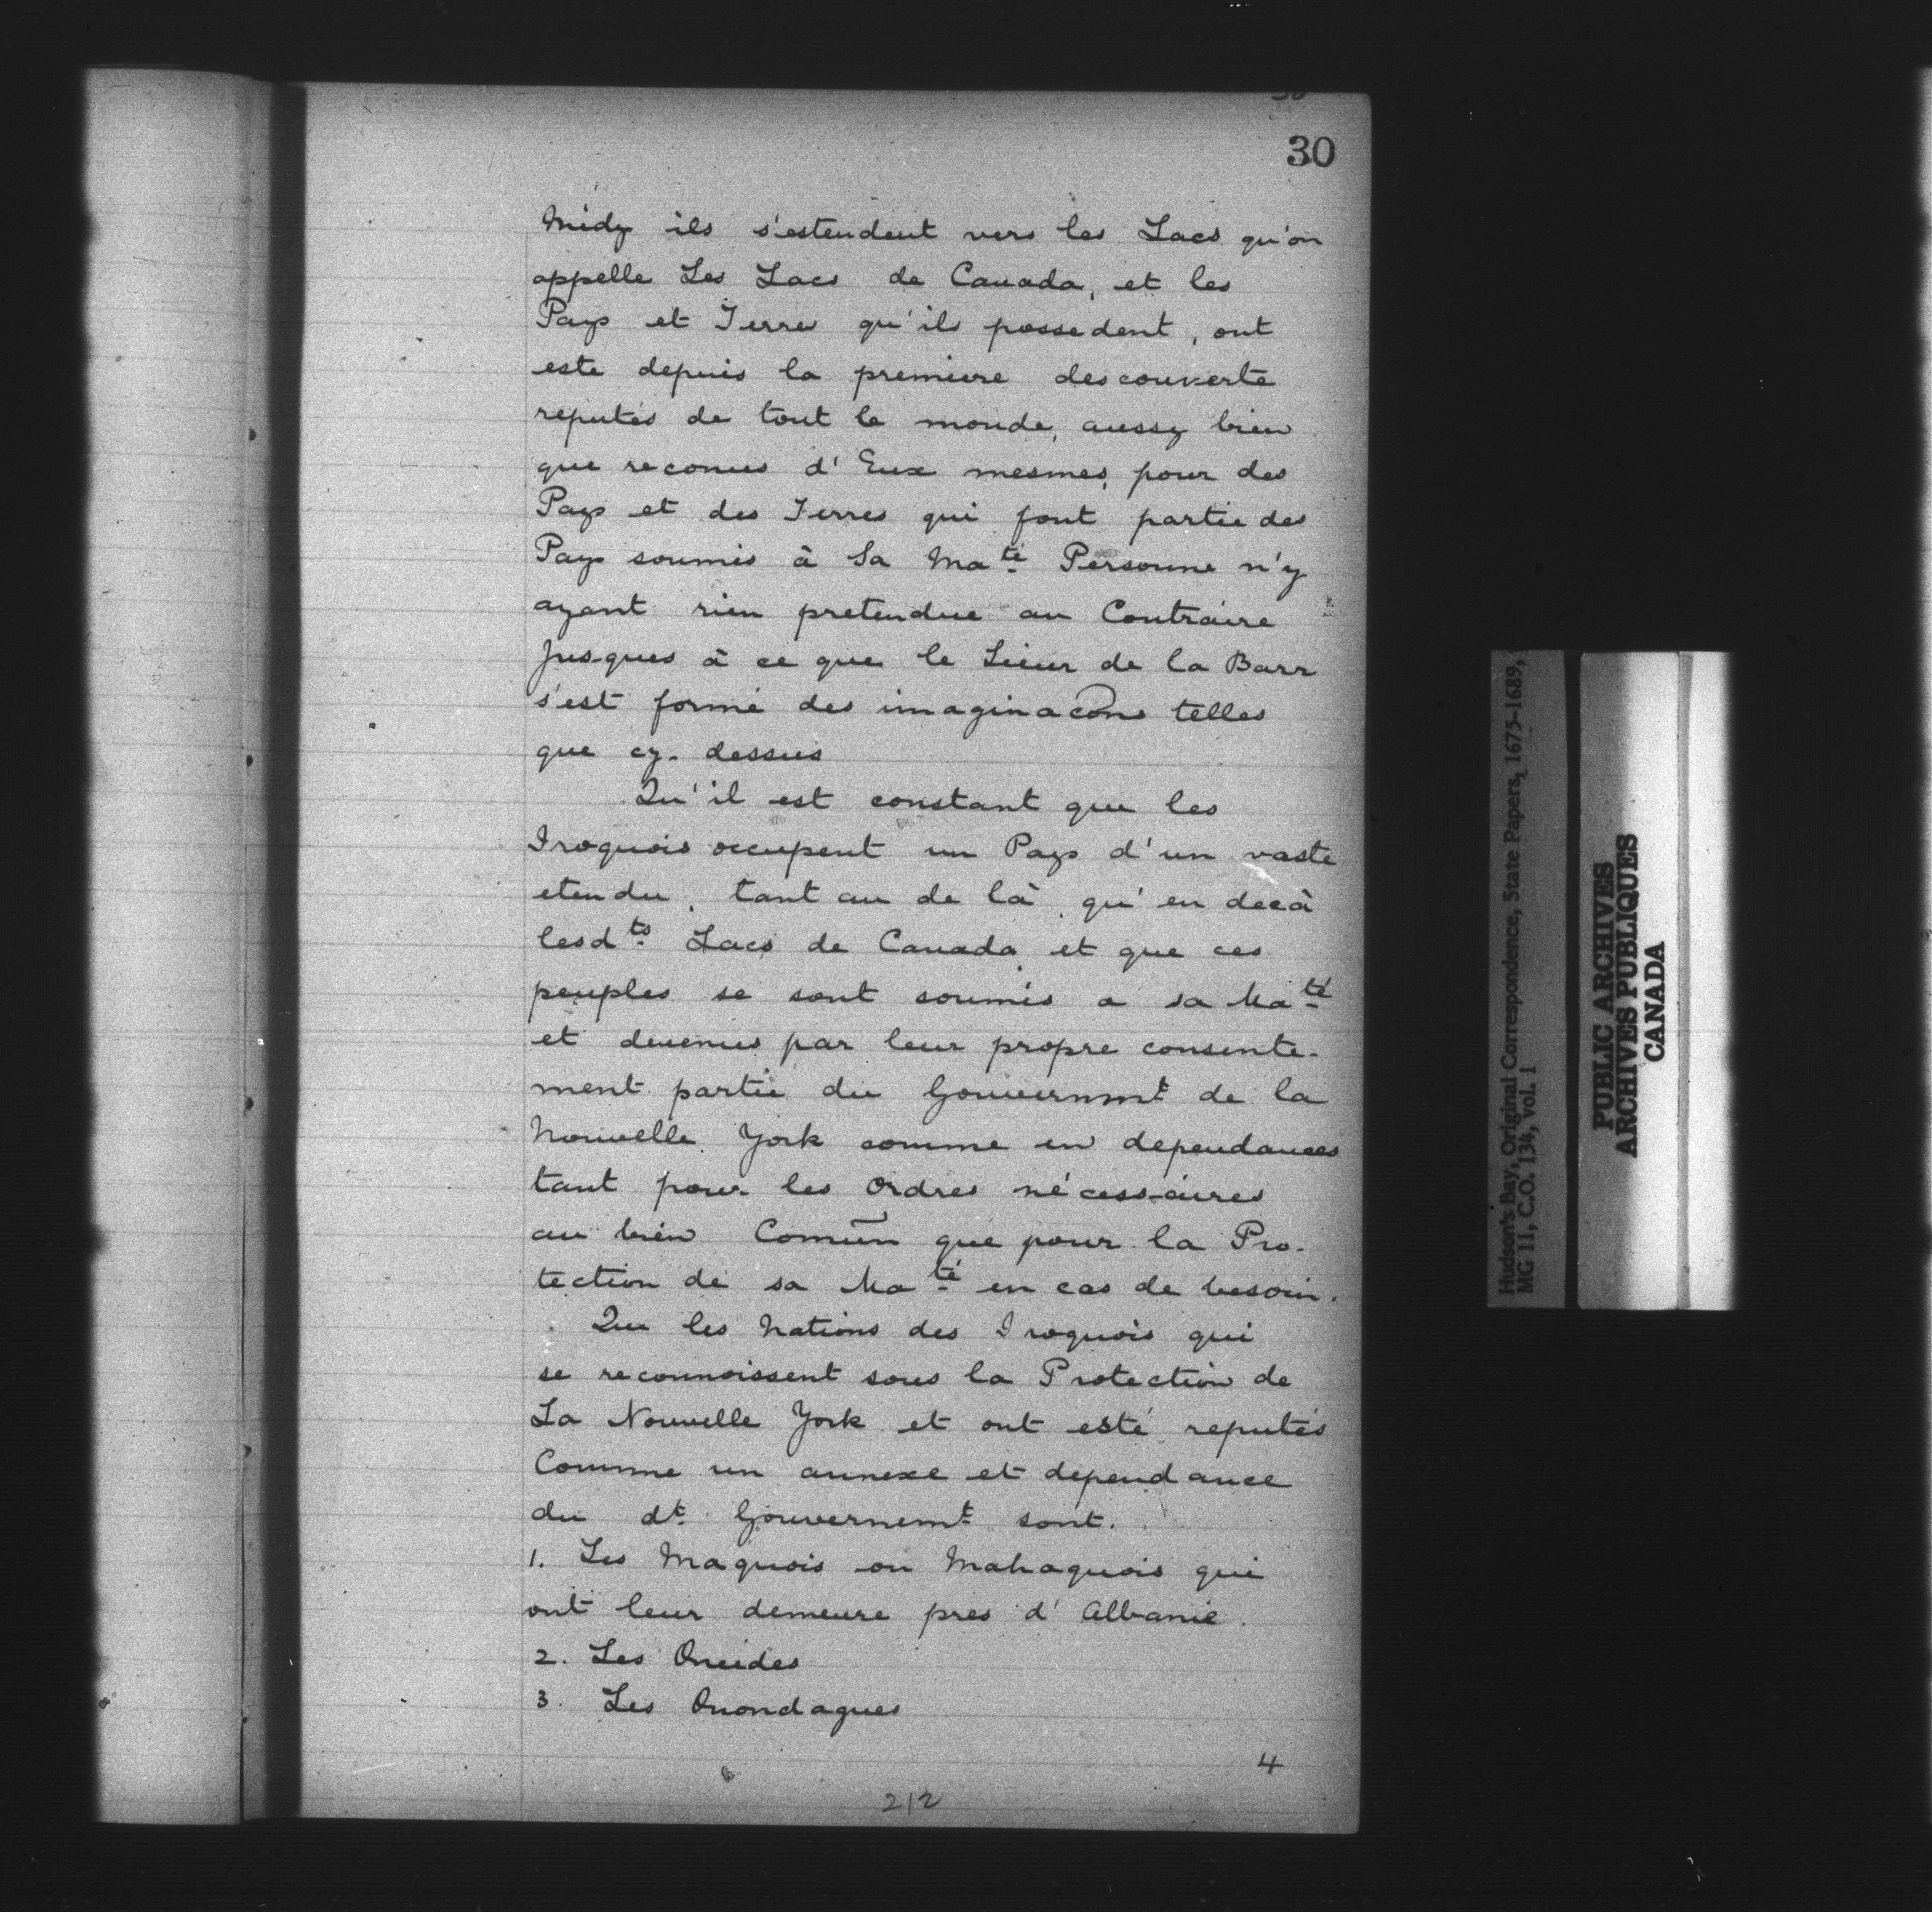 30
Midy ils s'estendent vers les Lacs qu'on
appelle Les Lacs de Canada, et les
Pays et Terres qu'ils possedent, ont
este depuis la premiere descouverte
reputés de tout le monde, aussy bien
que reconus d'Eux mesmes, pour des
Pays et des Terres qui font partie des
Pays soumis à Sa Ma.té Personne n'y
ayant rien pretendue au Contraire
Jusques à ce que le Sieur de la Barr
s'est formé des imaginacõns telles
que cy. dessus
Qu'il est constant que les
Iroquois occupent un Pays d'un vaste
etendu, tant au de là, qu'en decà
lesd.ts Lacs de Canada, et que ces
peuples se sont soumis a sa Ma.té
et devenus par leur propre consente-
ment partie du Gouvernmt de la
Nouvelle York comme en dependances
tant pour les Ordres nécessaires
au bien Comūn que pour la Pro-
tection de sa Ma.té en cas de besoin.
Que les Nations des Iroquois qui
se reconnoissent sous la Protection de
La Nouvelle York et ont esté reputés
Comme un annexe et dependance
du dt. Gouvernemt. sont.
1. Les Maquois ou Mahaquois qui
ont leur demeure pres d'Albanie.
2. Les Oneides
3. Les Onondagues
4
212
Hudson's Bay, Original Correspondence, State Papers, 1675-1689,
MG 11, C.O. 134, vol. 1
PUBLIC ARCHIVES
ARCHIVES PUBLIQUES
CANADA